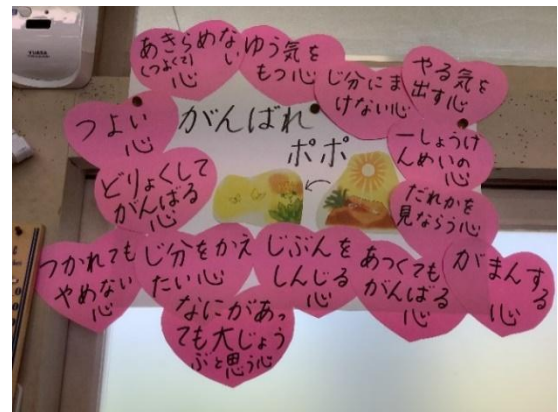 YUASA
あきらめない
(つよくて)
心
ゆう気を
もつ心
じ分にま
けない心
やる気を
出す心
つよい
心
がんばれ
ポポ
一しょうけ
んめいの
心
どりょくして
がんばる
心
だれかを
見ならう心
つかれても
やめない
心
じ分をかえ
たい心
じぶんを
しんじる
心
あつくても
がんばる
心
がまんする
心
なにがあっ
ても大じょう
ぶと思う心